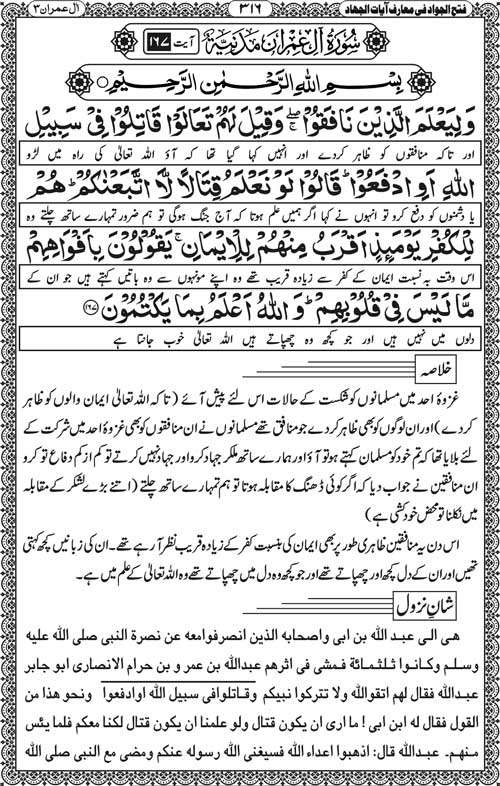 فتح الجواد فی معارف آیات الجهاد ۳۱۶ آل عمران ۳
سُوْرَةُ آلِ عِمْرَانَ مَدَنِيَّةٌ آیت ۱۶۷
بِسْمِ اللهِ الرَّحْمٰنِ الرَّحِيْمِ
وَلِيَعْلَمَ الَّذِيْنَ نَافَقُوْا ۚۖ وَقِيْلَ لَهُمْ تَعَالَوْا قَاتِلُوْا فِيْ سَبِيْلِ
اور تاکہ منافقوں کو ظاہر کردے اور انہیں کہا گیا تھا کہ آؤ اللہ تعالیٰ کی راہ میں لڑو
اللهِ اَوِ ادْفَعُوْا ؕ قَالُوْا لَوْ نَعْلَمُ قِتَالًا لَّا اتَّبَعْنٰكُمْ ؕ هُمْ
یا دشمنوں کو دفع کرو تو انہوں نے کہا اگر ہمیں علم ہوتا کہ آج جنگ ہوگی تو ہم ضرور تمہارے ساتھ چلتے وہ
لِلْكُفْرِ يَوْمَىِٕذٍ اَقْرَبُ مِنْهُمْ لِلْاِيْمَانِ ۚ يَقُوْلُوْنَ بِاَفْوَاهِهِمْ
اس وقت بہ نسبت ایمان کے کفر سے زیادہ قریب تھے وہ اپنے مونہوں سے وہ باتیں کہتے ہیں جو ان کے
مَّا لَيْسَ فِيْ قُلُوْبِهِمْ ؕ وَاللهُ اَعْلَمُ بِمَا يَكْتُمُوْنَ ۱۶۷
دلوں میں نہیں ہیں اور جو کچھ وہ چھپاتے ہیں اللہ تعالیٰ خوب جانتا ہے
خلاصہ
غزوۂ احد میں مسلمانوں کو شکست کے حالات اس لئے پیش آئے (تاکہ اللہ تعالیٰ ایمان والوں کو ظاہر
کردے) اور ان لوگوں کو بھی ظاہر کردے جو منافق تھے مسلمانوں نے ان منافقوں کو بھی غزوۂ احد میں شرکت کے
لئے بلایا تھا کہ تم خود کو مسلمان کہتے ہو تو آؤ اور ہمارے ساتھ ملکر جہاد کرو اور جہاد نہیں کرتے تو کم از کم دفاع تو کرو
ان منافقین نے جواب دیا کہ اگر کوئی ڈھنگ کا مقابلہ ہوتا تو ہم تمہارے ساتھ چلتے (اتنے بڑے لشکر کے مقابلہ
میں نکلنا تو محض خودکشی ہے)
اس دن یہ منافقین ظاہری طور پر بھی ایمان کی بنسبت کفر کے زیادہ قریب نظر آرہے تھے۔ ان کی زبانیں کچھ کہتی
تھیں اور ان کے دل کچھ اور چھپاتے تھے اور جو کچھ وہ دل میں چھپاتے تھے وہ اللہ تعالیٰ کے علم میں ہے۔
شانِ نزول
هی الی عبد الله بن ابی واصحابه الذین انصرفوامعه عن نصرة النبی صلی الله علیه
وسلم وكانوا ثلثمائة فمشی فی اثرهم عبدالله بن عمر و بن حرام الانصاری ابو جابر
عبدالله فقال لهم اتقوالله ولا تتركوا نبیكم وقاتلوافی سبیل الله اوادفعوا ونحو هذا من
القول فقال له ابن ابی! ما اری ان یكون قتال ولو علمنا ان یكون قتال لكنا معكم فلما یئس
منهم۔ عبدالله قال: اذهبوا اعداء الله فسیغنی الله رسوله عنكم ومضی مع النبی صلی الله